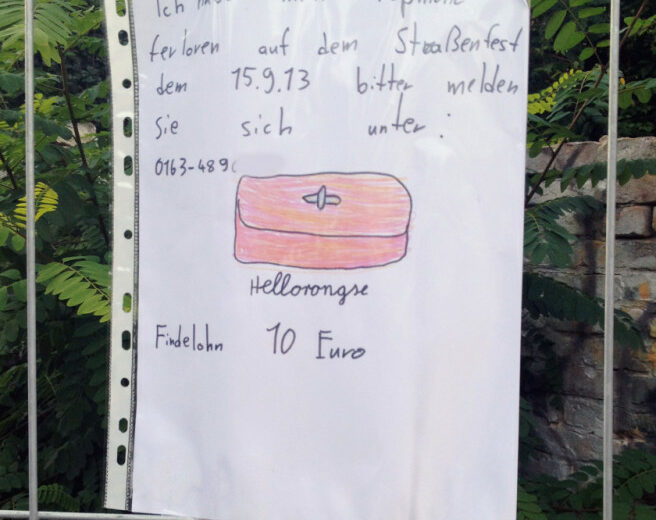 Ich
ferloren auf dem Straßenfest
dem 15.9.13 bitter melden
Sie sich unter:
0163-489
Hellorongse
Findelohn 10 Euro